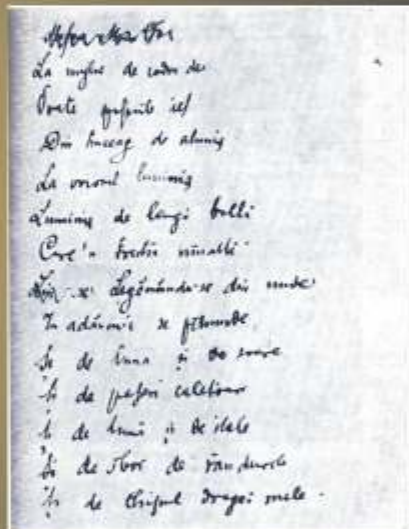 La mijloc de codru de
Toate paserile ies
Din huceag de aluniş
La voiosul luminiş
Luminiş de lângă baltă
Care'n trestia naltă
Legănându-se din unde
In adâncu-i se pătrunde
Şi de luna şi de soare
Şi de paseri calatoare
Şi de lună şi de stele
Şi de sbor de rândunele
Şi de chipul dragei mele.